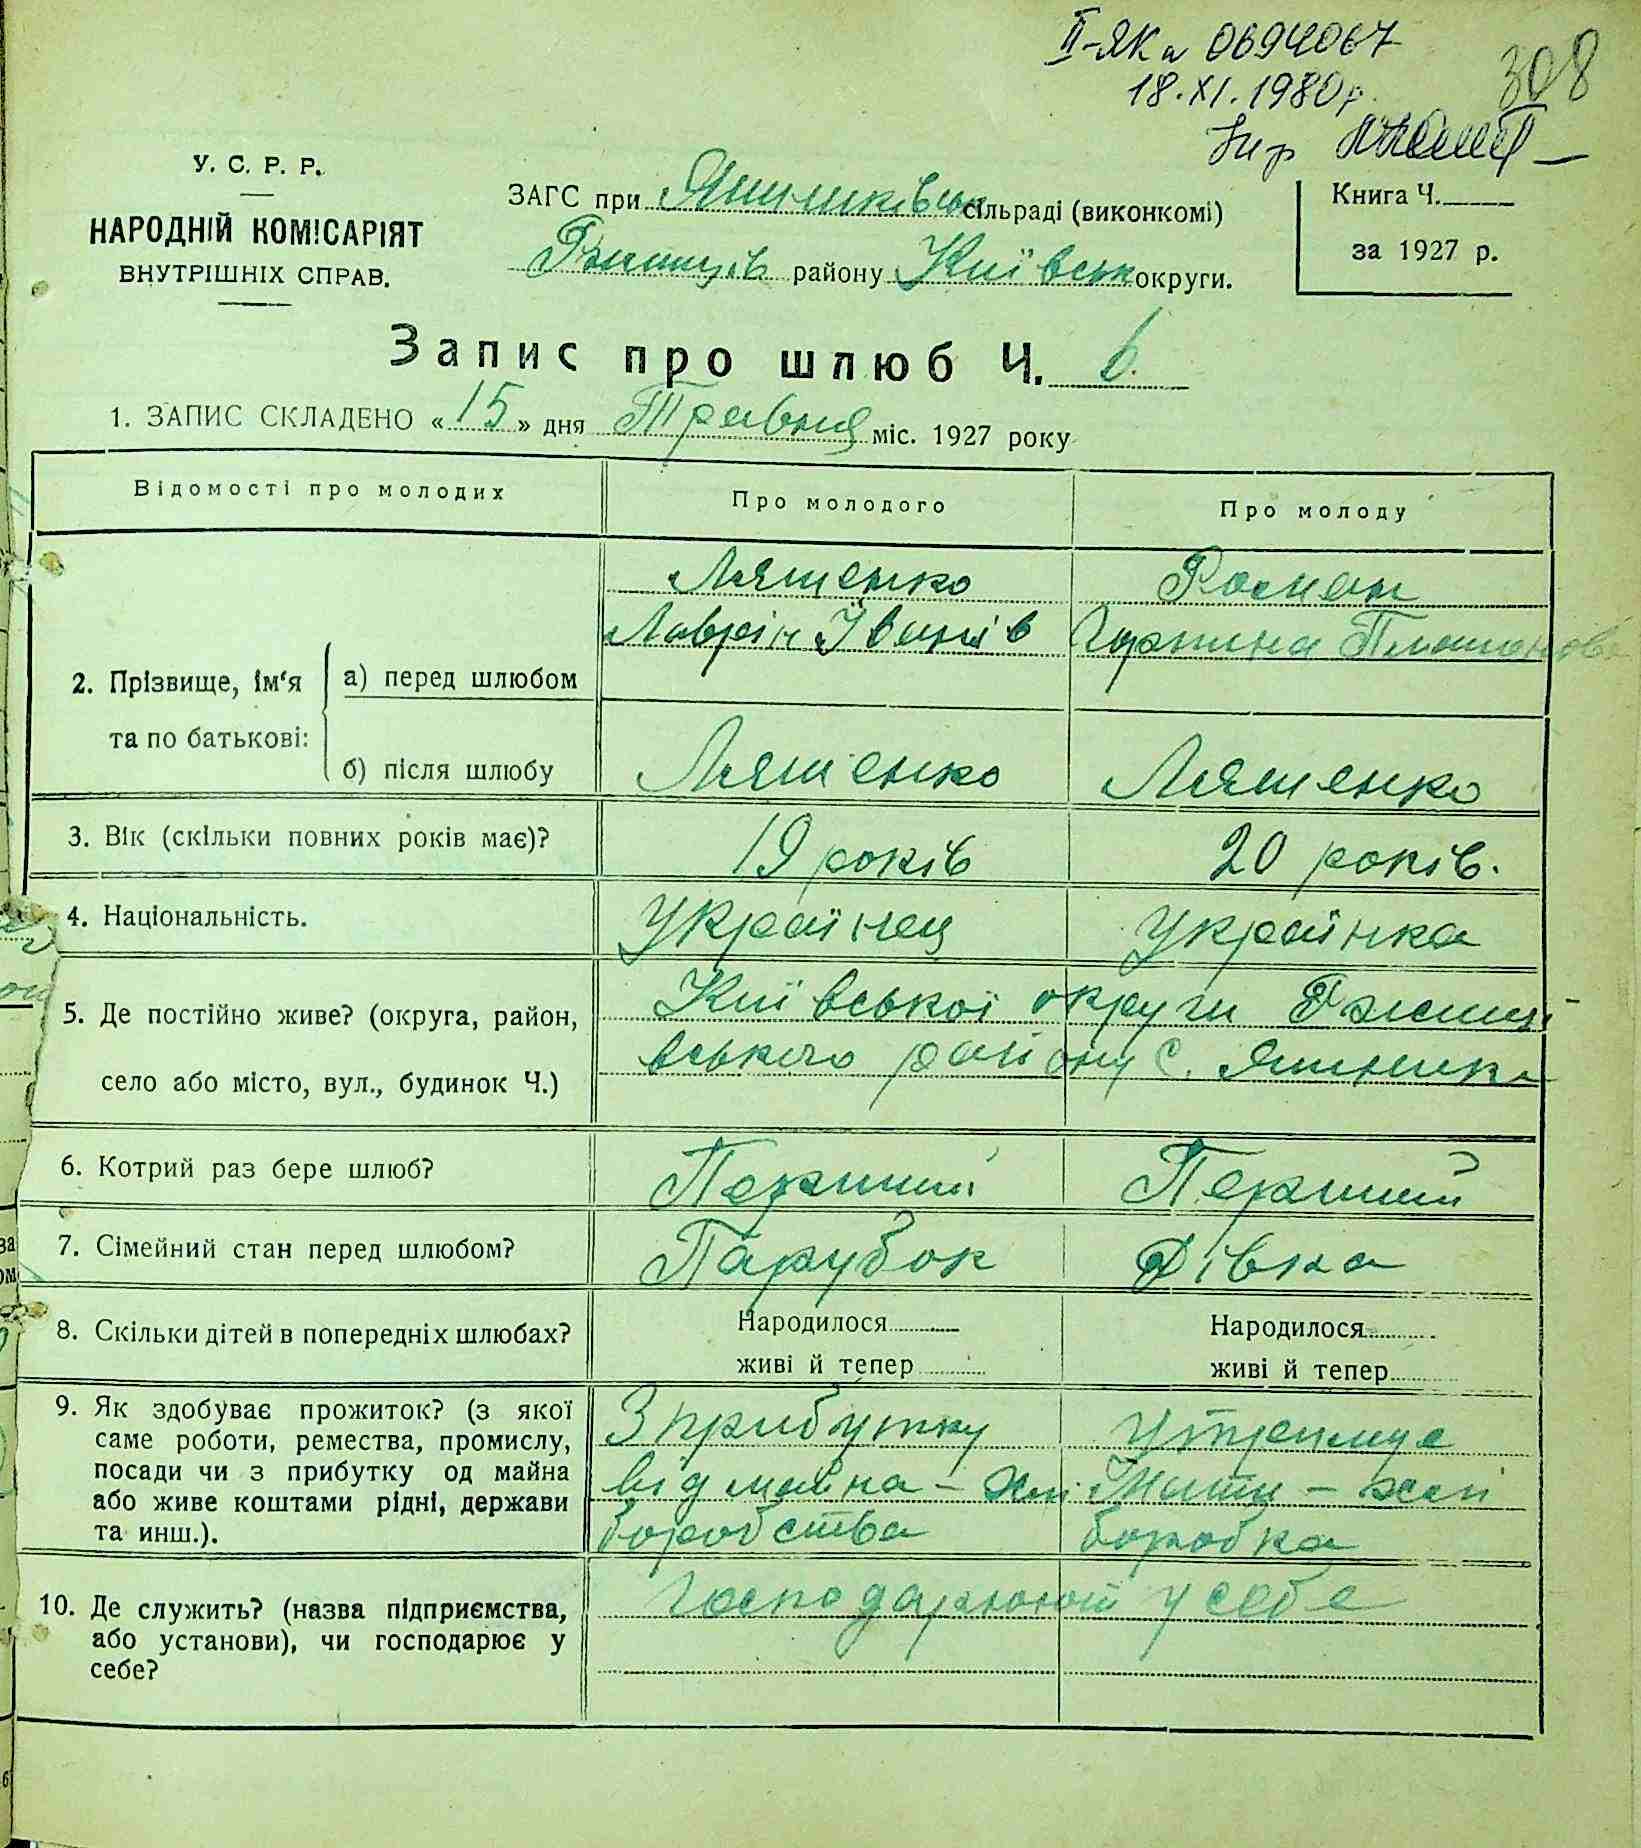 II-ЯК № 0694067
308
18.XI.1980р.
У. С. Р. Р.
НАРОДНІЙ КОМІСАРІЯТ
ВНУТРІШНІХ СПРАВ.
ЗАГС при Яшниківськ сільраді (виконкомі)
Ржищів району Київськ округи.
Книга Ч.
за 1927 р.
Запис про шлюб Ч. 6.
1. ЗАПИС СКЛАДЕНО « 15 » дня Травня міс. 1927 року
Відомості про молодих
Про молодого
Про молоду
2. Прізвище, ім'я
та по батькові:
а) перед шлюбом
Ляшенко
Лаврін Іванів
Роман
б) після шлюбу
Ляшенко
Ляшенко
3. Вік (скільки повних років має)?
19 років
20 років.
4. Національність.
Українец
Українка
5. Де постійно живе? (округа, район,
село або місто, вул., будинок Ч.)
Київської округи Ржищі-
вського району с. Яшники
6. Котрий раз бере шлюб?
Перший
Перший
7. Сімейний стан перед шлюбом?
Парубок
Дівка
8. Скільки дітей в попередніх шлюбах?
Народилося
живі й тепер
Народилося
живі й тепер
9. Як здобуває прожиток? (з якої
саме роботи, ремества, промислу,
посади чи з прибутку од майна
або живе коштами рідні, держави
та инш.).
З прибутку
від майна - хлі
боробства
Утримує
Мати - хлі
боробка
10. Де служить? (назва підприємства,
або установи), чи господарює у
себе?
Господарюють у себе